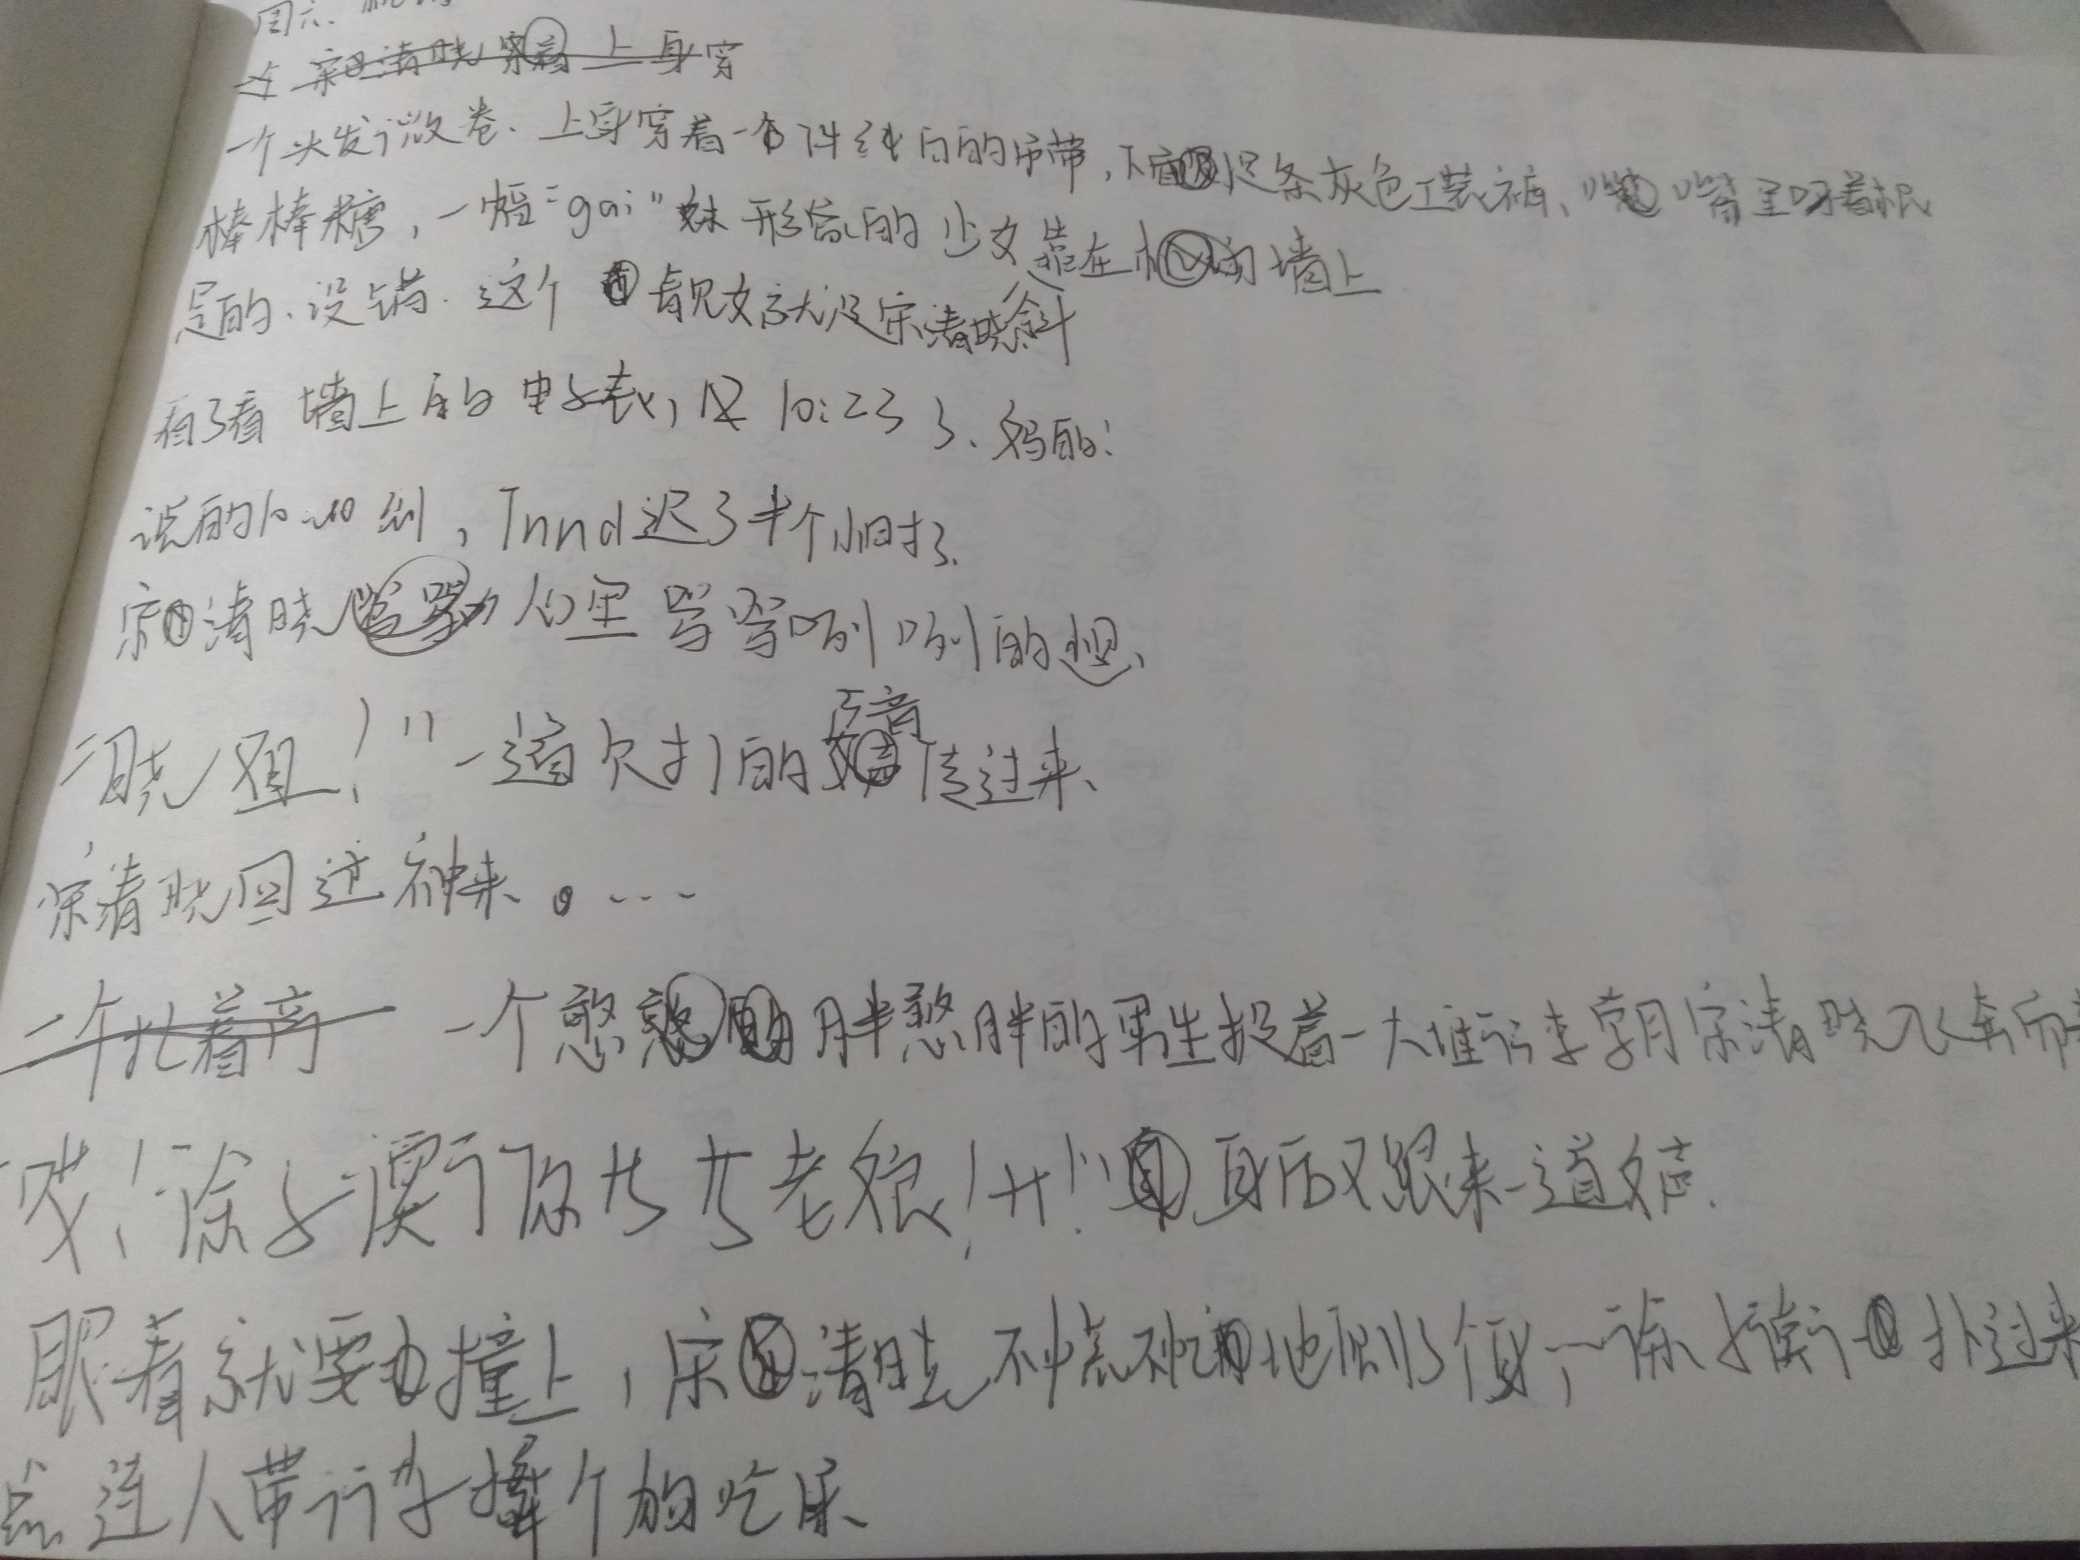 周六.
一个头发微卷.上身穿着一件纯白的吊带,下是条灰色工装裤、嘴里叼着根
棒棒糖,一幅"gai"妹形象的少女靠在的墙上
是的、没错.这个靓女就是宋清晓斜
看了看墙上的电子表,是10:23了、妈的!
说的10:00到,Tnnd迟了半个小时了.
宋清晓心里骂骂咧咧的想、
"晓姐!"一道欠打的声音传过来、
宋清晓回过神来、。...
一个憨胖憨胖的男生提着一大堆行李朝宋清晓飞奔而
哎!徐子谟你丫丫老狼!艹!"身后又跟来一道女声.
眼看就要撞上,宋清晓不慌不忙地侧了个身,徐扑过来
点连人带行李摔个狗吃屎、